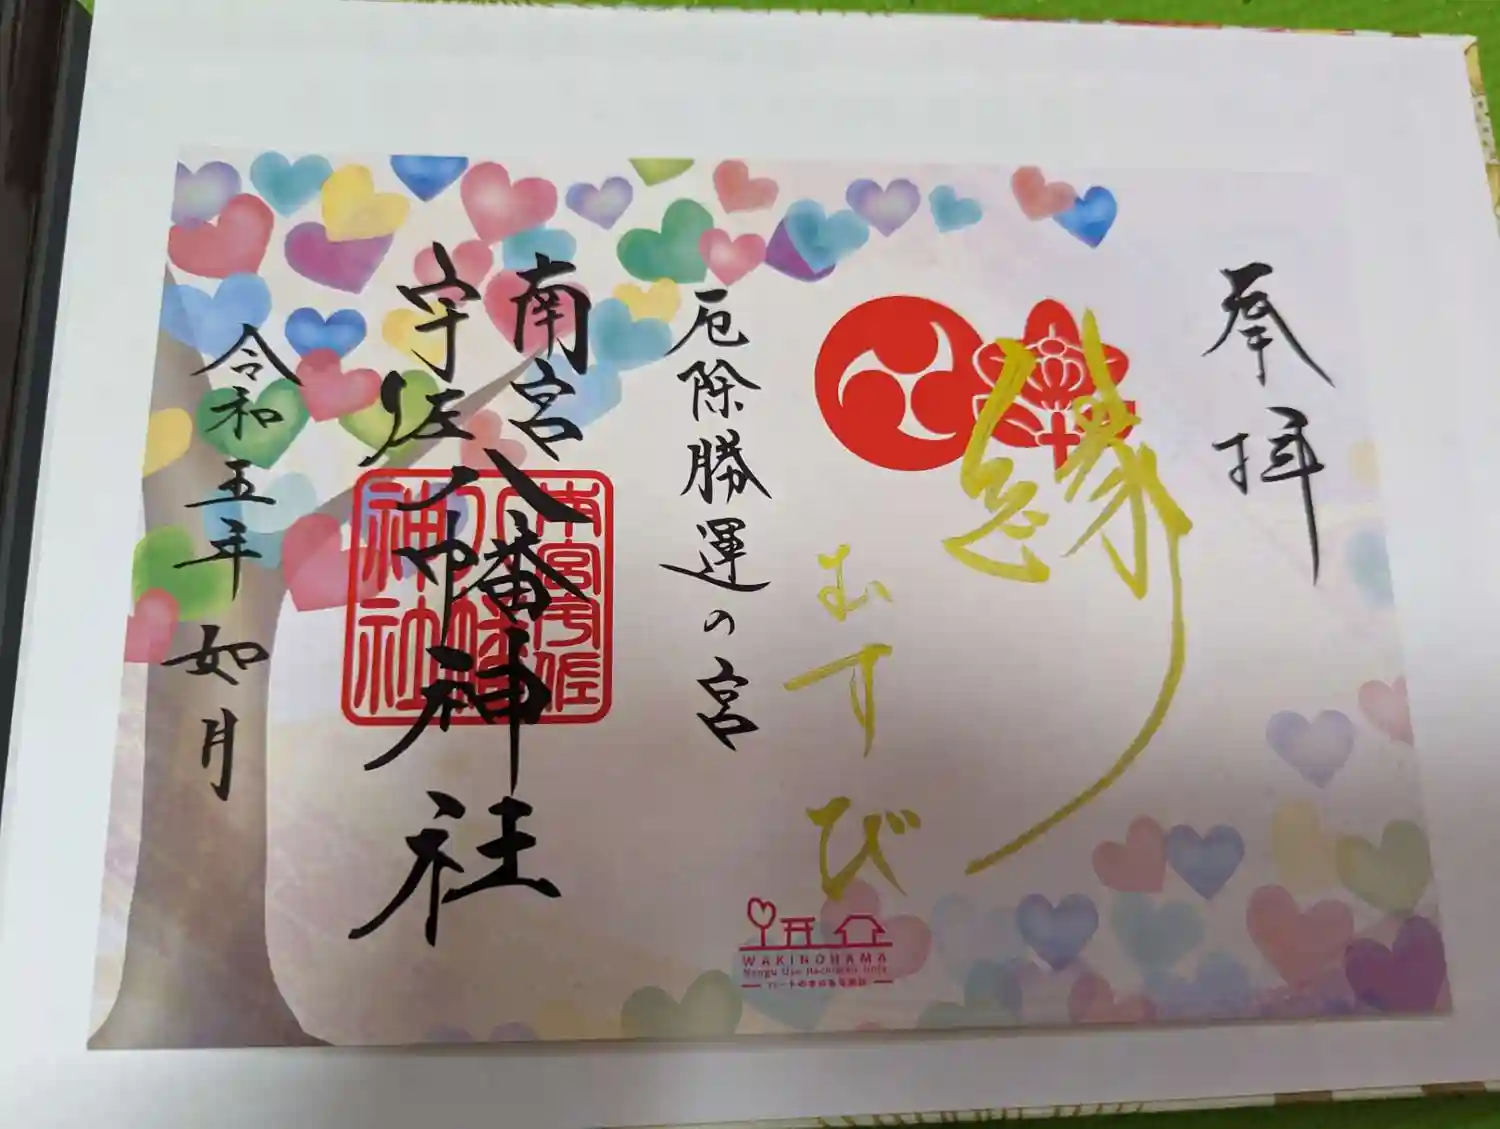 奉拝
縁
むすび
厄除勝運の宮
南宮
宇佐
八幡神社
南宮宇佐
八幡
神社
令和五年 如月
WAKINOHAMA
Nangu Usa Hachiman Jinja
ハートの木のある神社